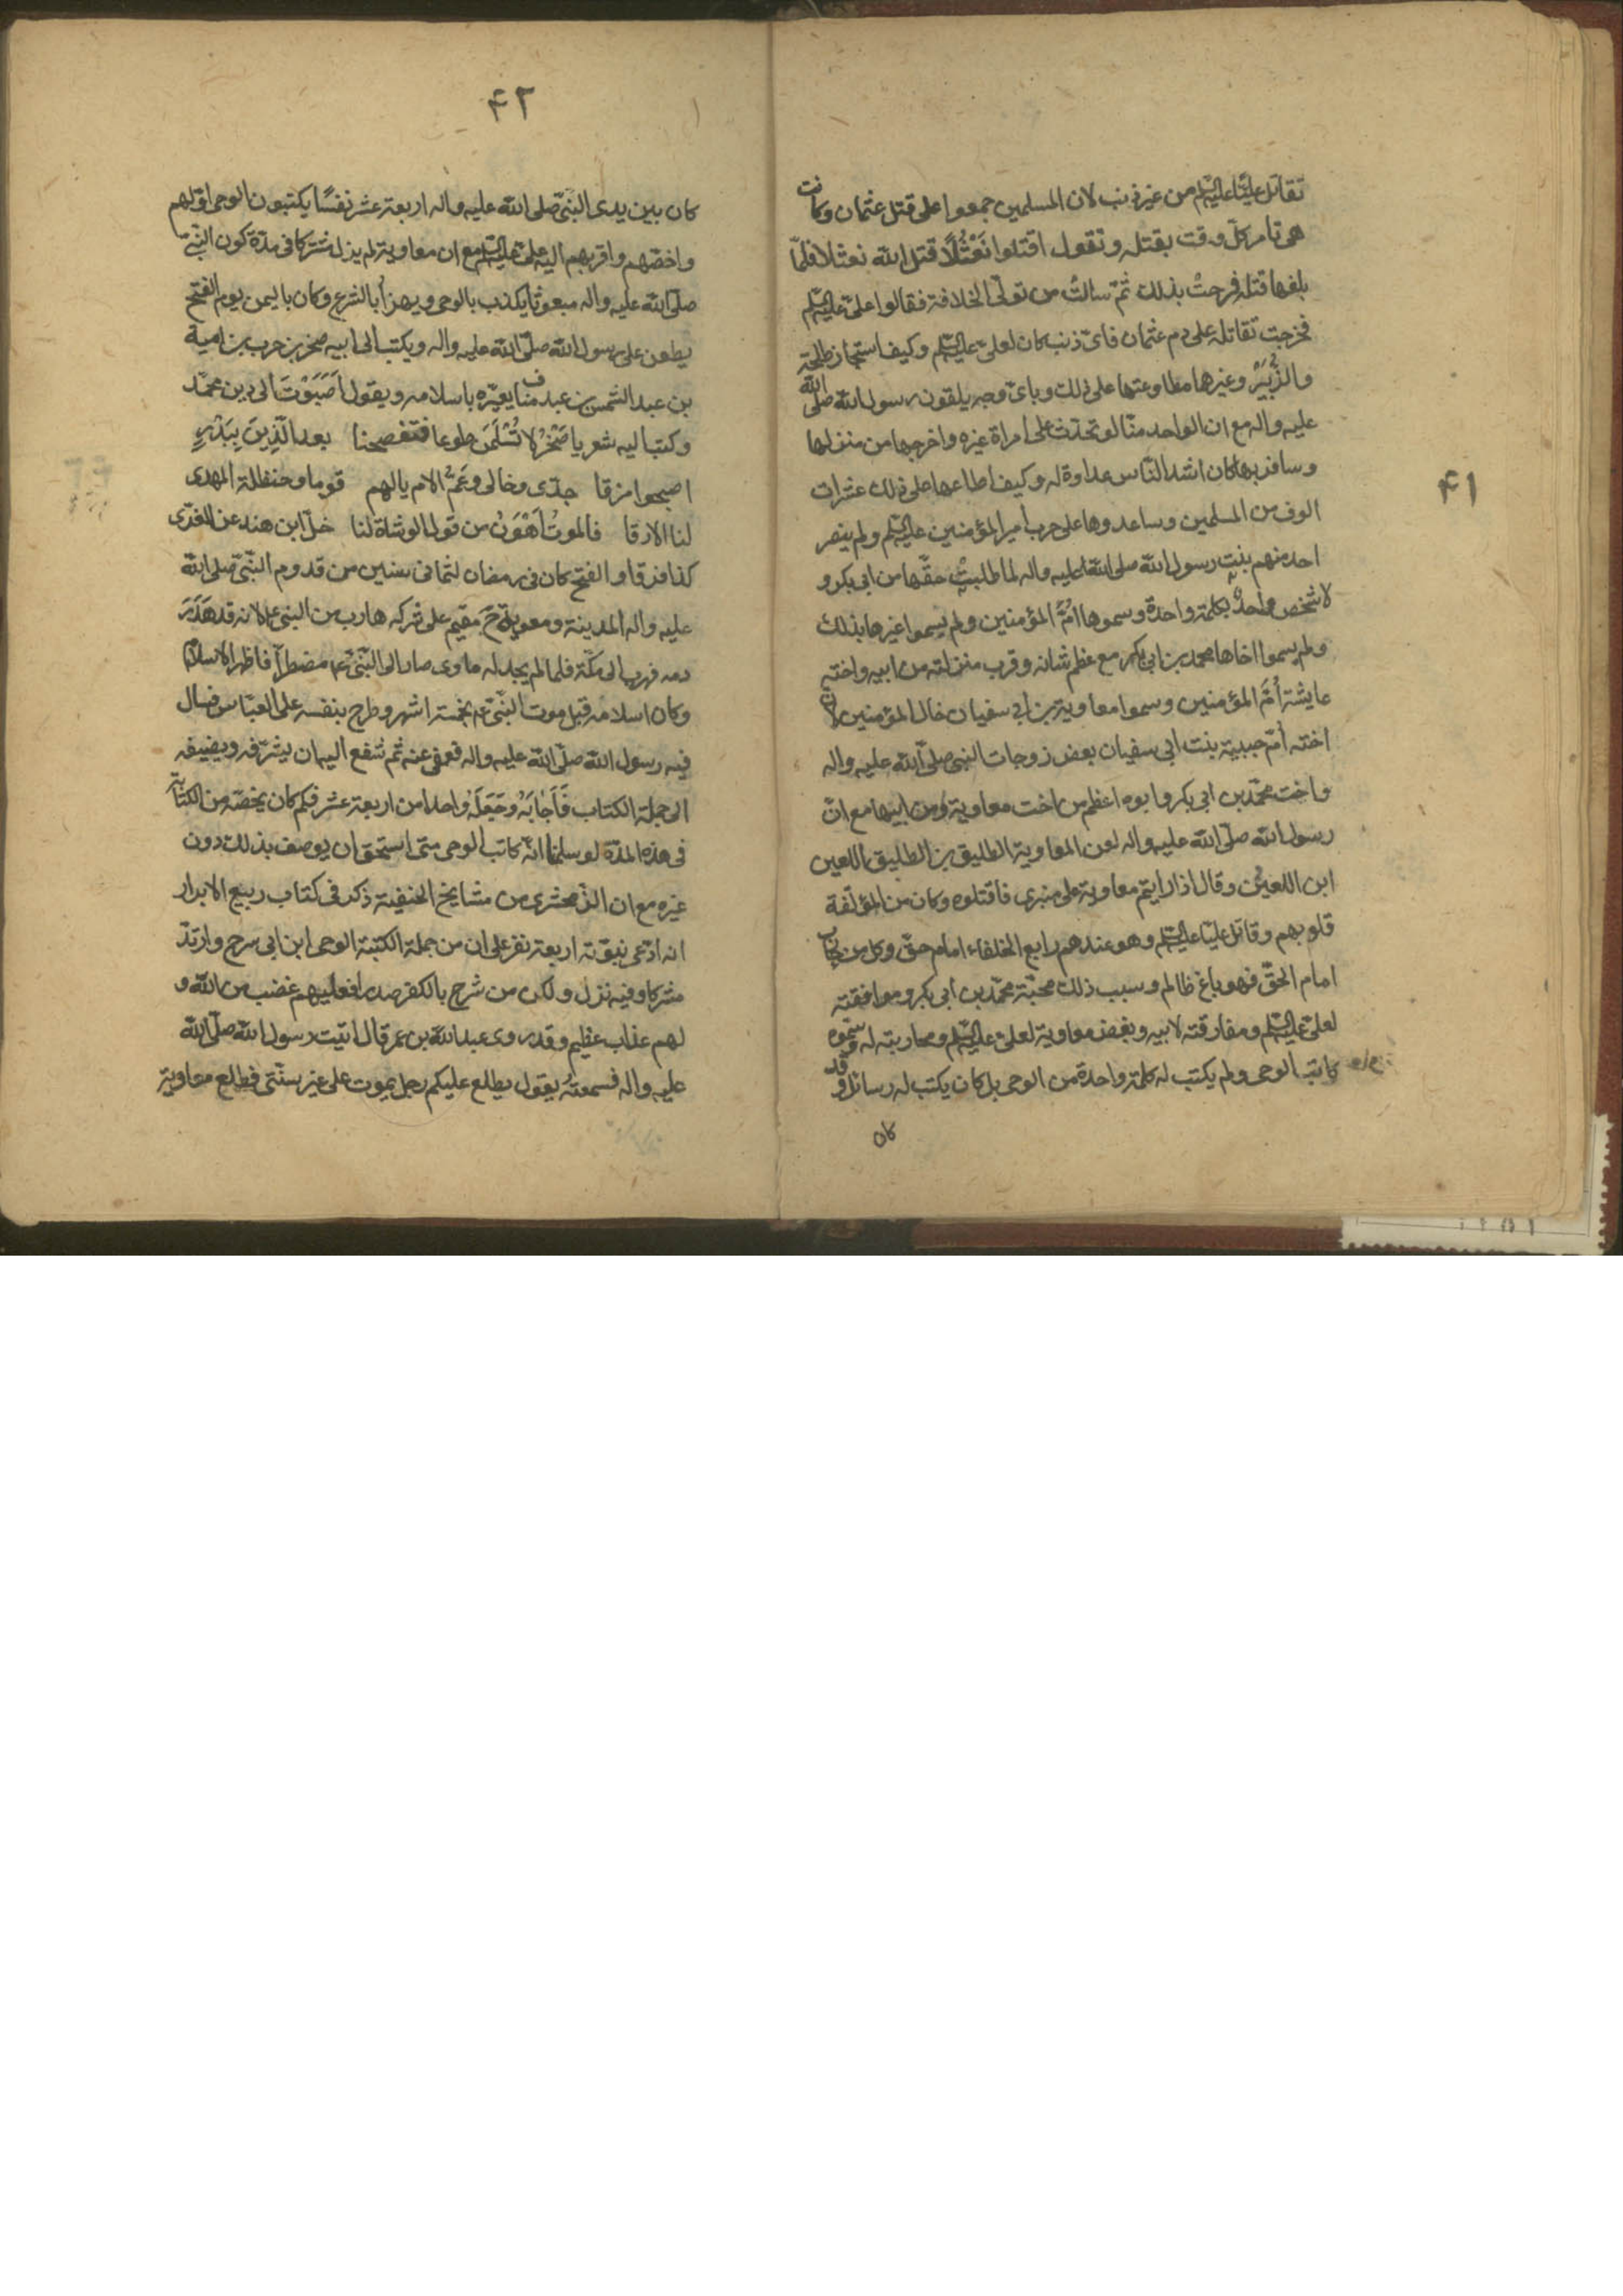 ۴۱
تقاتل عليّا عليه السّلم من غير ذنب لان المسلمين جمعوا على قتل عثمان وكانت
هى تامر كلّ وقت بقتله وتقول اقتلوا نَعْثُلًا قتل الله نعثلا فلمّا
بلغها قتله فرحتْ بذلك ثمّ سالتْ من تولّى الخلافة فقالوا علىّ عليه السّلم
فخرجت تقاتله على دم عثمان فاىّ ذنب كان لعلىّ عليه السّلم وكيف استجاز طلحة
والزُّبَيْر وغيرها مطاوعتها على ذلك وباىّ وجه يلقون رسول الله صلى الله
عليه واله مع ان الواحد منّا لو تحدّث على امراة غيره واخرجها من منزلها
وسافر بها كان اشد النّاس عداوة له وكيف اطاعها على ذلك عشرات
الوف من المسلمين وساعدوها على حرب امير المؤمنين عليه السّلم ولم ينصر
احد منهم بنت رسول الله صلى الله عليه واله لما طلبتْ حقّها من ابى بكر و
لا شخص واحدٌ بكلمة واحدة وسموها امُّ المؤمنين ولم يسموا غيرها بذلك
ولم يسموا اخاها محمد بن ابى بكر مع عظم شانه وقرب منزلته من ابيه واخته
عايشة أمَّ المؤمنين وسموا معاوية بن ابى سفيان خال المؤمنين لان
اخته امّ حبيبة بنت ابى سفيان بعض زوجات النبى صلى الله عليه واله
واخت محمّد بن ابى بكر وابوه اعظم من اخت معاوية ومن ابيها مع انّ
رسول الله صلّى الله عليه واله لعن المعاوية الطليق بن الطليق اللعين
ابن اللعين وقال اذا رايتم معاوية على منبرى فاقتلوه وكان من المؤلّفة
قلوبهم وقاتل عليّا عليه السّلم وهو عندهم رابع الخلفاء امام حقّ وكل من حارب
امام الحقّ فهو باغ ظالم وسبب ذلك محبّة محمّد بن ابى بكر وموافقته
لعلىّ عليه السّلم ومفارقته لابيه وبغض معاوية لعلىّ عليه السّلم ومحاربته له وسمّوه
كاتب الوحى ولم يكتب له كلمة واحدة من الوحى بل كان يكتب له رسائل وقد
كان
۴۲
كان بين يدى النّبىّ صلى الله عليه واله اربعة عشر نفسًا يكتبون الوحى اوّلهم
واخصّهم واقربهم اليه علىّ عليه السّلم مع ان معاوية لم يزل مشركا فى مدّة كون النّبىّ
صلّى الله عليه واله مبعوثا يكذب بالوحى ويهزأ بالشرع وكان باليمن يوم الفتح
يطعن على رسول الله صلّى الله عليه واله ويكتب الى ابيه صخر بن حرب بن امية
بن عبد الشمس بن عبد مناف يعيّره باسلامه ويقول اَصَبَوْتَ الى دين محمّد
وكتب اليه شعر يا صَخْرُ لا تُسْلَمَن طوعا فتفصحنا بعد الّذِينَ بِبَدْرٍ
اصبحوا مزقا جدّى وخالى وعَمُّ الام يالهم قوما وحنظلة المهدى
لنا الارقا فالموتُ اَهْوَنُ من قول الوشاة لنا خلّ ابن هند عن العزّى
كذا فزقا والفتح كان فى رمضان لثمانى سنين من قدوم النّبىّ صلى الله
عليه واله المدينة ومعوية ح مقيم على شركه هارب من النبى ع لانه قد هَدَرَ
دمه فهرب الى مكّة فلما لم يجد له ماوى صار الى النّبىّ ع مضطرّا فاظهر الاسلام
وكان اسلامه قبل موت النّبىّ ع بخمسة اشهر وطرح بنفسه على العبّاس فسال
فيه رسول الله صلّى الله عليه واله فعفى عنه ثم شفع اليه ان يشرّفه ويضيفه
الى جملة الكتاب فَاَجَابَهُ وجَعَلَهُ واحدا من اربعة عشر فكم كان يخصّه من الكتابة
فى هذه المدّة لو سلمنا انّه كاتب الوحى متى استحق ان يوصف بذلك دون
غيره مع ان الزّمخشرى من مشايخ الحنفية ذكر فى كتاب ربيع الابرار
انه ادّعى نبوّته اربعة نفر على ان من جملة الكتبة الوحى ابن ابى سرح وارتدّ
مشركا وفيه نزل ولكن من شرح بالكفر صدرا فعليهم غضب من الله و
لهم عذاب عظيم وقد روى عبد الله بن عمر قال اتيت رسول الله صلّى الله
عليه واله فسمعته يقول يطلع عليكم رجل يموت على غير سنّتى فطلع معاوية